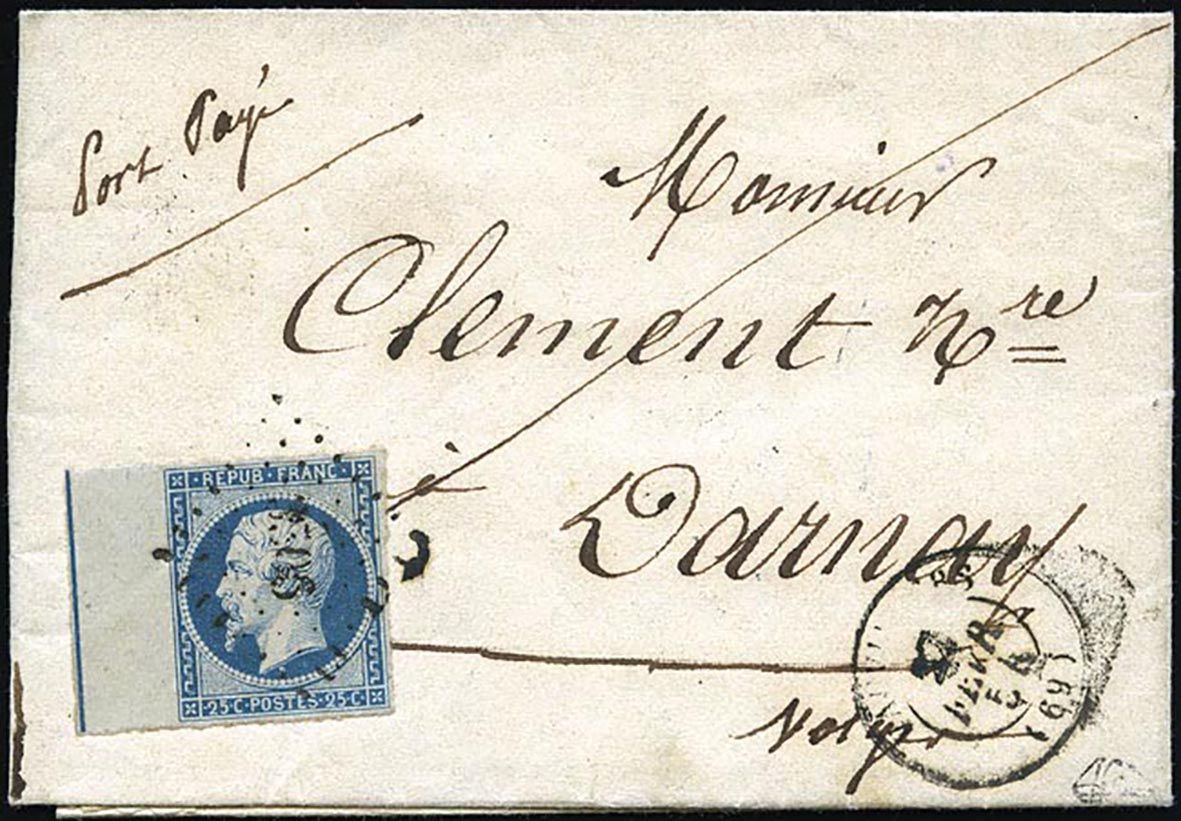 Port Payé
Monsieur
Clement N.re
à
Darnay
Vosges
REPUB · FRANC
25·C·POSTES·25·C
FEVR
54
(69)